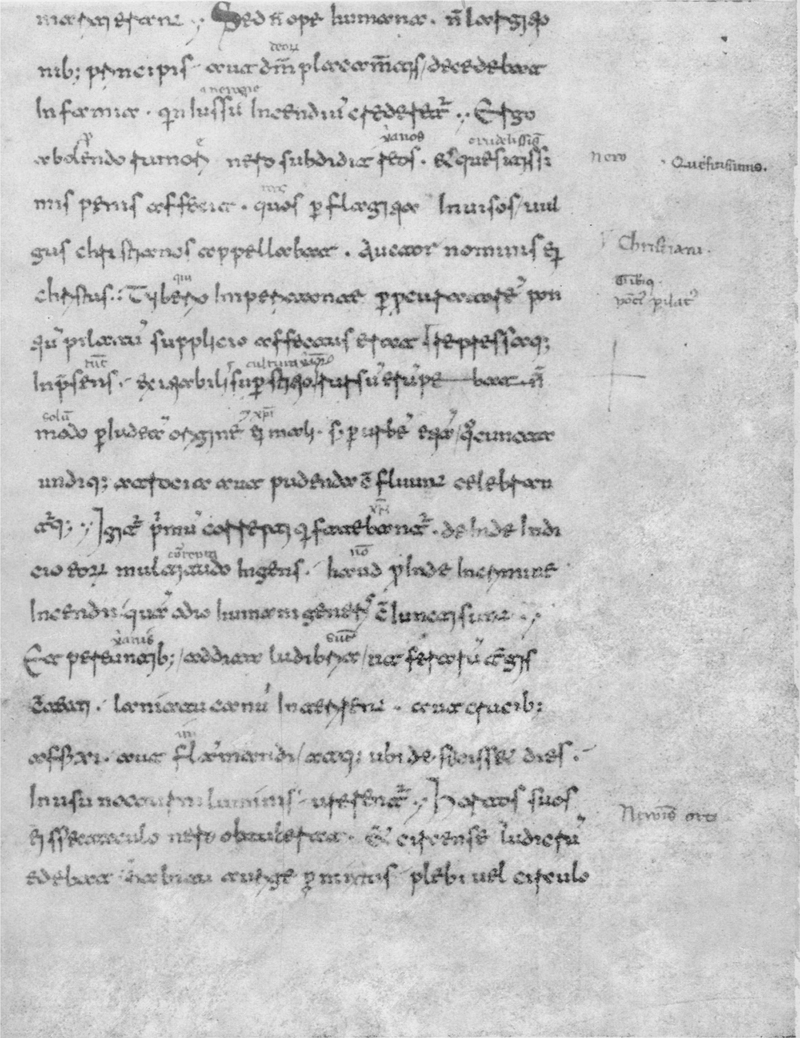 mariti erant. Sed ñ ope humana. ñ largitio
deorũ
nib; principis aut dm̃ placam̃tis decedebat
Infamia. qn Iussũ Incendiũ crederet̃. Ergo
abolendo rumori nero subdidit reos. & quesitissi
mis penis affecit. quos p flagitia Inuisos uul
gus christianos appellabat. Auctor nominis ei
christus. Tiberio Imperitante p pcuratorẽ pon
tiũ pilatũ supplicio affectus erat. repressaq;
Inp̃sens. exitiabilis supstitio rursũ erũpebat. ñ
modo p Iudeã originẽ ei mali. s; p urbẽ etiã quo cuncta
undiq; atrocia aut pudenda cõfluunt celebran
t̃q; Igit̃ p̃mũ correpti q̃ fatebant̃. deinde Indi
cio eorũ multitudo Ingens. haud pinde Incrimine
Incendii quã odio humani generis cõiuncti sunt.
Et pereuntib; addita ludibria. ut ferarũ t̃gis
cõtecti. laniatu canũ Interirent. aut crucib;
affixi. aut flãmandi atq; ubi defecisset dies.
Inusũ nocturni luminis urerent̃. Hortos suos
ei spectaculo nero obtulerat. & circense ludicrũ
edebat. habitu aurige pmixtus plebi uel circulo
Nero
Christiani.
Tibi9.